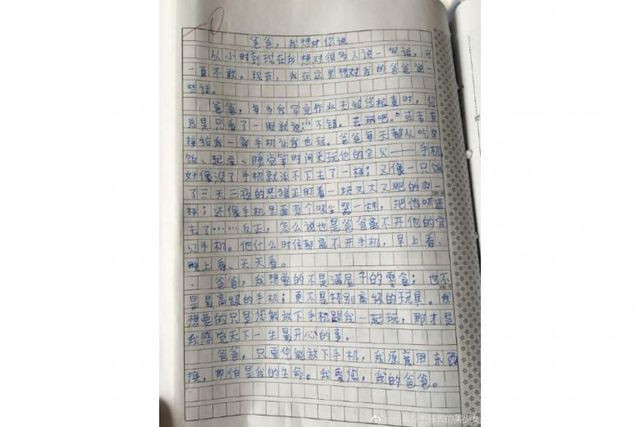 爸爸，我想对你说
从小时到现在我想对很多人说一句话，可
一直不敢。现在，我在这里想对我的爸爸说一
些话。
爸爸，每当我写完作业去给您检查时，您
只看了一眼就说："不错，去玩吧。"或者直
接给我一部手机让我也玩。爸爸每天都从吃早
饭、起床、睡觉等时间来玩他的宝贝——手机，
好像没了手机就活不下去了一样；又像一只饿
了三天三夜的恶狼正盯着一块又大又肥的肉一
样；还像手机里面有个吸尘器一样，把他吸进
去了……反正，怎么说也是爸爸离不开他的宝
贝手机。他什么时候都离不开手机，早上看、
晚上看、天天看。
爸爸，我想要的不是满屋子的零食；也不
是最高级的手机；更不是特别高级的玩具。我
想要的只是您能放下手机跟我一起玩，那才是
我感觉天下一生最开心的事。
爸爸，只要您能放下手机，我愿意用东西
换，哪怕是我的生命。我爱您，我的爸爸。